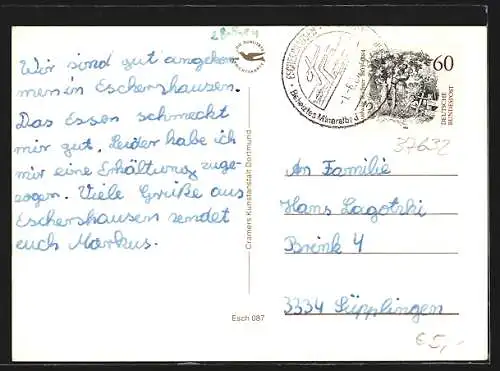 Wir sind gut angekom
men in Eschershausen.
Das Essen schmeckt
mir gut. Leider habe ich
mir eine Erkältung zuge-
zogen. Viele Grüße aus
Eschershausen sendet
euch Markus.
Cramers Kunstanstalt Dortmund
Esch 087
60
DEUTSCHE
BUNDESPOST
37632
An Familie
Hans Lagotzki
Brink 4
3334 Süpplingen
€ 5,-